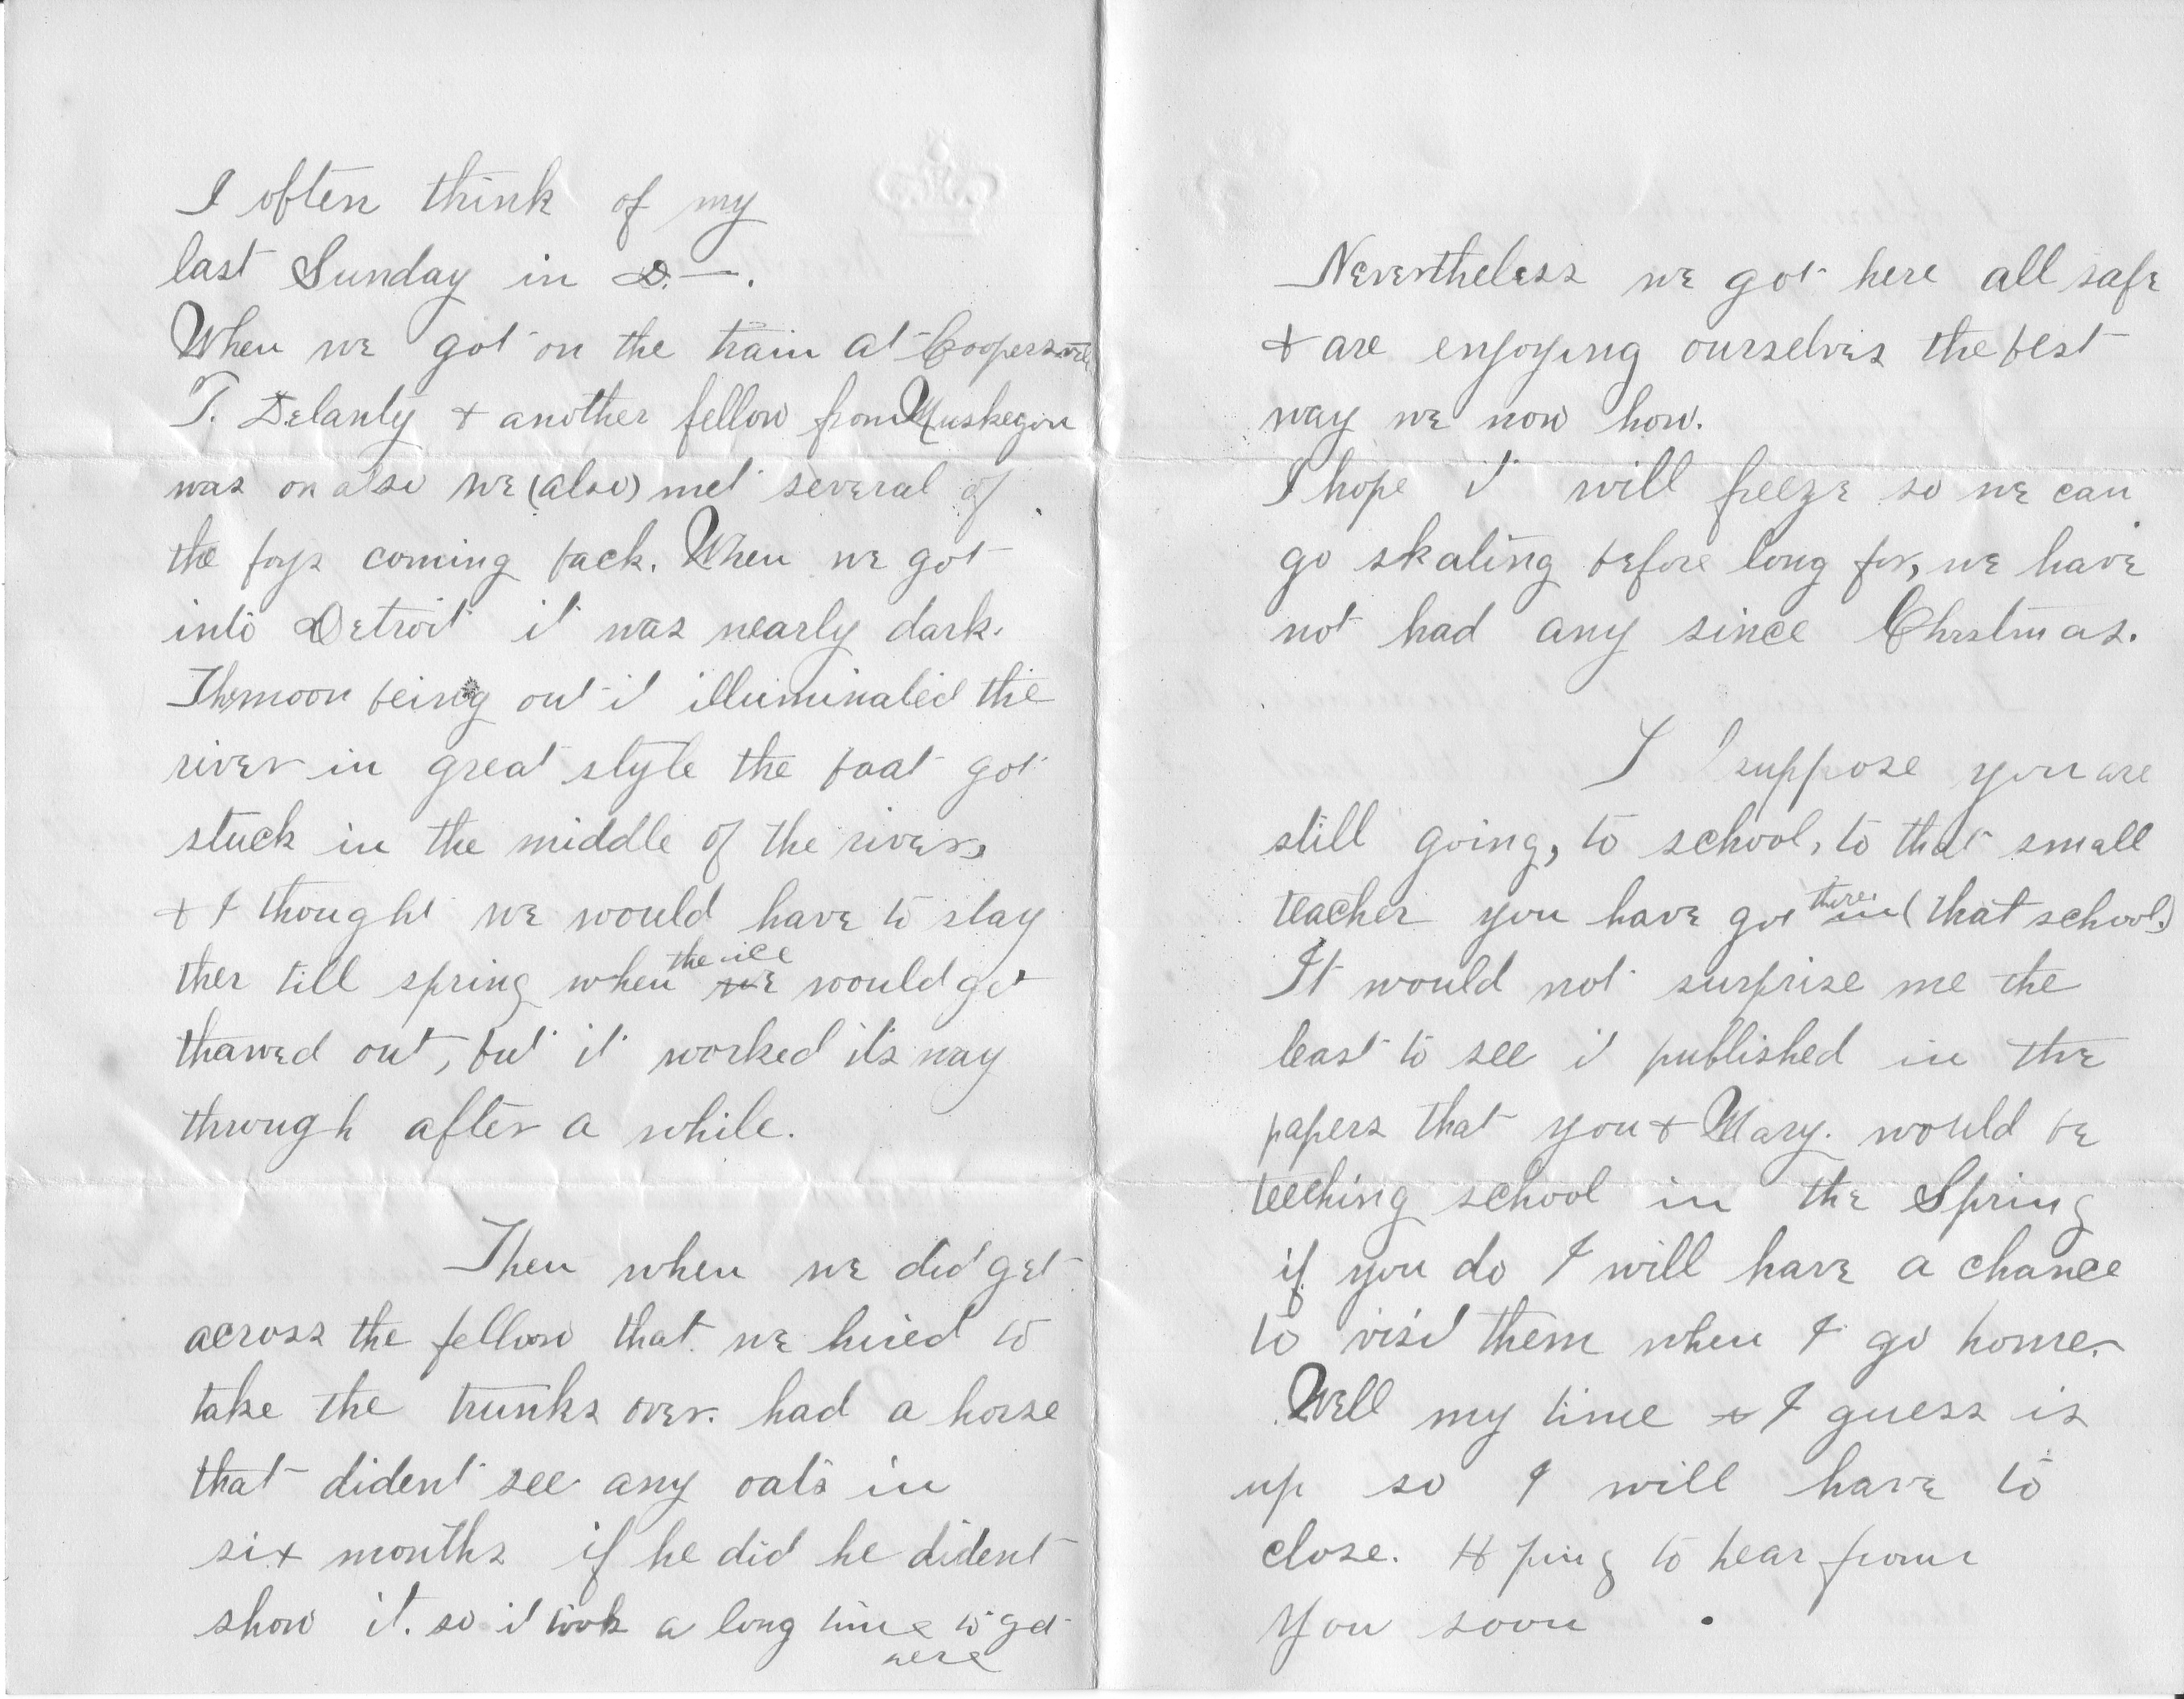 I often think of my
last Sunday in D. —.
When we got on the train at
T. Delanty + another fellow from Muskegon
was on also we (also) met several of
the boys coming back. When we got
into Detroit it was nearly dark.
The moon being out it illuminated the
river in great style the boat got
stuck in the middle of the river,
+ I thought we would have to stay
ther till spring when the ice we would get
thawed out, but it worked its way
through after a while.
Then when we did get
across the fellow that we hired to
take the trunks over. had a horse
that dident see any oats in
six months if he did he dident
show it. so it took a long time to get
here
Nevertheless we got here all safe
+ are enjoying ourselves the best
way we now how.
I hope it will freeze so we can
go skating before long for, we have
not had any since Christmas.
I suppose you are
still going, to school, to that small
teacher you have got there in (that school.)
It would not surprise me the
least to see it published in the
papers that you + Mary. would be
teeching school in the Spring
if you do I will have a chance
to visit them when I go home.
Well my time + I guess is
up so I will have to
close. Hoping to hear from
you soon .